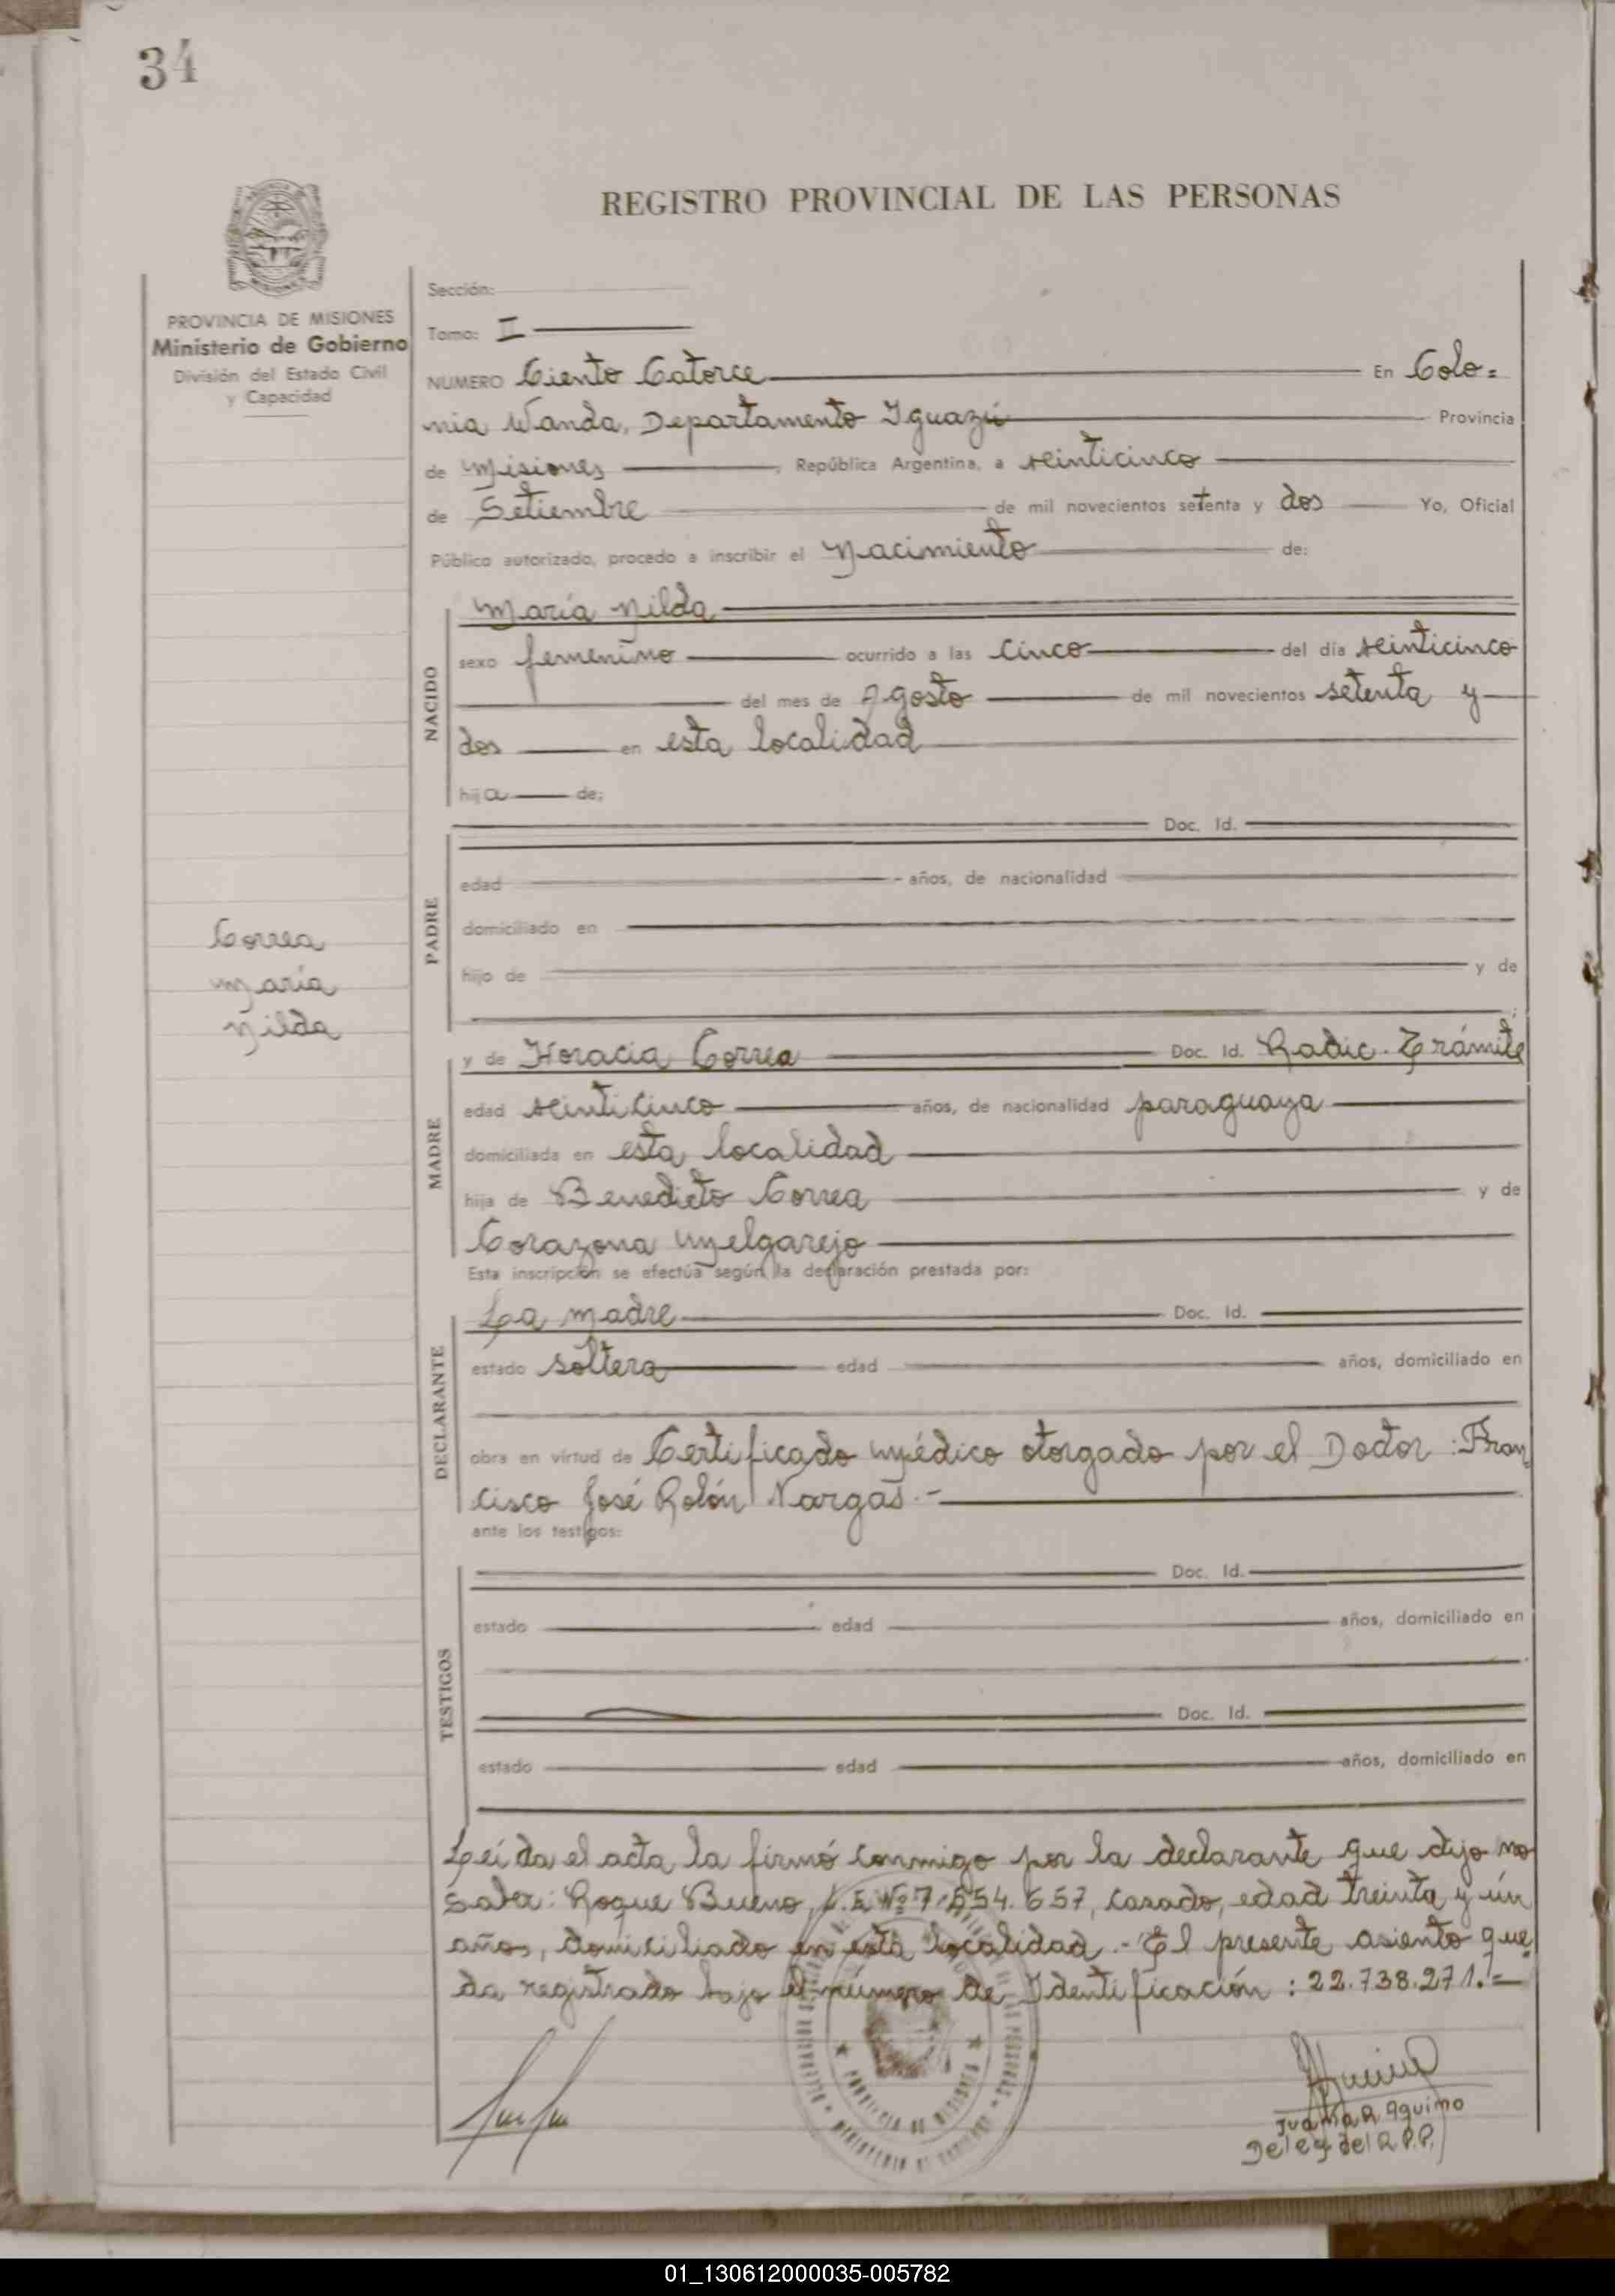 34
REGISTRO PROVINCIAL DE LAS PERSONAS
PROVINCIA DE MISIONES
Ministerio de Gobierno
División del Estado Civil
y Capacidad
Sección:
Tomo: II
NUMERO Ciento Catorce En Colo=
nia Wanda, Departamento Iguazú Provincia
de Misiones, República Argentina, a veinticinco
de Setiembre de mil novecientos setenta y dos Yo, Oficial
Público autorizado, procedo a inscribir el Nacimiento de:
NACIDO
María Nilda
sexo femenino ocurrido a las cinco del día veinticinco
del mes de Agosto de mil novecientos setenta y
dos en esta localidad
hija de:
PADRE
Doc. Id.
edad años, de nacionalidad
domiciliado en
hijo de y de
Correa
María
Nilda
MADRE
y de Horacia Correa Doc. Id. Radic. Trámite
edad veinticinco años, de nacionalidad paraguaya
domiciliada en esta localidad
hija de Benedicto Correa y de
Corazona Melgarejo
Esta inscripción se efectúa según la declaración prestada por:
DECLARANTE
La madre Doc. Id.
estado soltera edad años, domiciliado en
obra en virtud de Certificado médico otorgado por el Doctor: Fran
cisco José Rolón Vargas.-
ante los testigos:
TESTIGOS
Doc. Id.
estado edad años, domiciliado en
Doc. Id.
estado edad años, domiciliado en
Leída el acta la firmó conmigo por la declarante que dijo no
saber: Roque Bueno, L.E Nº 7.554.657, casado, edad treinta y ún
años, domiciliado en esta localidad.- El presente asiento que
da registrado bajo el número de Identificación: 22.738.271.=
PROVINCIA DE MISIONES
MINISTERIO DE GOBIERNO
Juana R Aquino
Deleg del R.P.P.
01_130612000035-005782